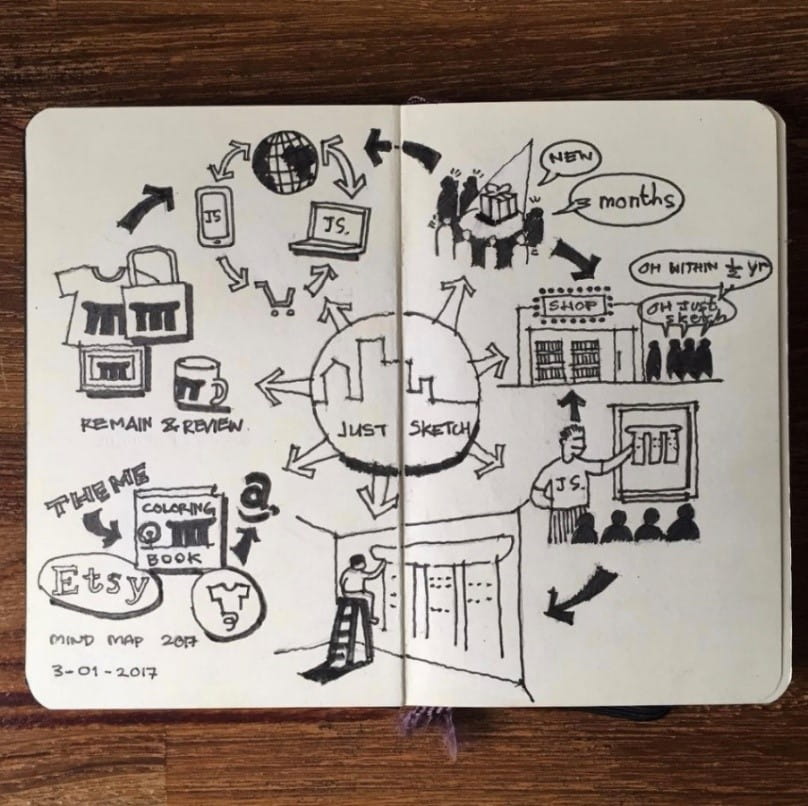 NEW
3 months
JS
JS.
OH WITHIN ½ yr
SHOP
OH JUST
SKetch
JUST SKETCH
REMAIN & REVIEW.
JS.
THEME
@
COLORING
BOOK
Etsy
MIND MAP 2017
3-01-2017